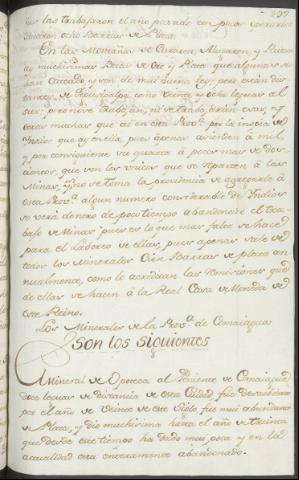 257
ños las trabajaron el año pasado con pocos operarios
sacaron ocho Barras de Plata.
En las Montañas de Curaren, Aluvaren, y Plata
ay muchisimas Betas de Oro y Plata que algunas se
han Cateado y son de mui buena ley; pero están dis
tantes, de Tegusigalpa como veinte y ocho leguas al
sur; pero no se trabajan, ni se trabajarán estas, y
otras muchas que ai en esta Prov.ª por la inopia de
Indios que ay en ella, pues apenas a mil,
y por consiguiente su quarta à pocos mas de dos
cientos, que son los unicos que se reparten à las
Minas, y si no se toma la providencia de agregarle à
esta Prov.ª algun numero considerable de Indios
se verá dentro de poco tiempo abandonado el tra
bajo de Minas pues es lo que mas falta se hace
para el laboreo de ellas, pues apenas
los Minerales Cien Barras de plata an
nualmente, como lo acreditan las remisiones que
de ellas se hacen à la Real Casa de Moneda de
este Reino.
Los Minerales de la Prov.ª de Comaiagua
son los siguientes
Mineral de Opoteca al Poniente de Comaiagua
doce leguas de distancia de esta Ciudad fue descubierto
por el año de veinte de este Siglo fue mui abundante
de Plata, y dio muchisima hasta el año de treinta
que desde este tiempo ha dado mui poca y en la
actualidad está enteramente abandonado.